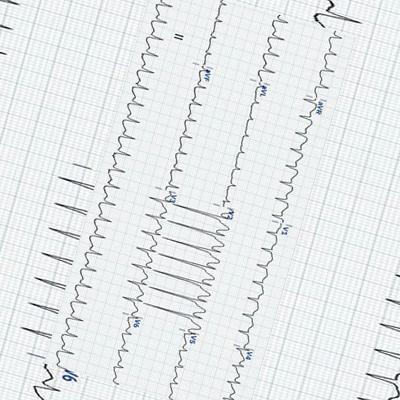 II
aVF
aVL
aVR
V3
V2
V1
V6
V5
V4
V6